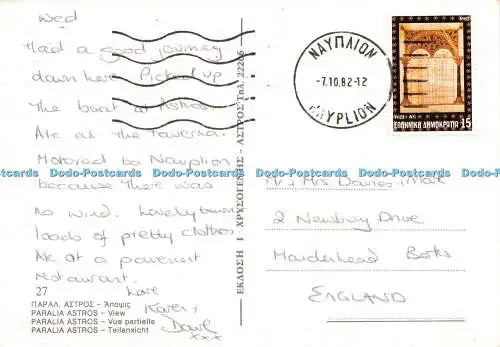 Wed
Had a good journey
down here Picked up
the boat at Astros.
Ate at the taverna.
Motored to Navplion
because there was
no wind. Lovely town
loads of pretty clothes.
Ate at a pavement
restaurant.
Love
Karen &
Dave
xxx
27
ΠΑΡΑΛ. ΑΣΤΡΟΣ – Άποψις
PARALIA ASTROS – View
PARALIA ASTROS – Vue partielle
PARALIA ASTROS – Teilansicht
ΕΚΔΟΣΗ Ι. ΧΡΥΣΟΓΕΝΗΣ - ΑΣΤΡΟΣ Τηλ. 22206
ΝΑΥΠΛΙΟΝ
-7.10.82-12
NAYPLION
ΕΛΛΗΝΙΚΗ ΔΗΜΟΚΡΑΤΙΑ 15
Mr & Mrs Davies
2 Newbury Drive
Maidenhead Berks
ENGLAND
Dodo-Postcards Dodo-Postcards Dodo-Postcards Dodo-Postcards